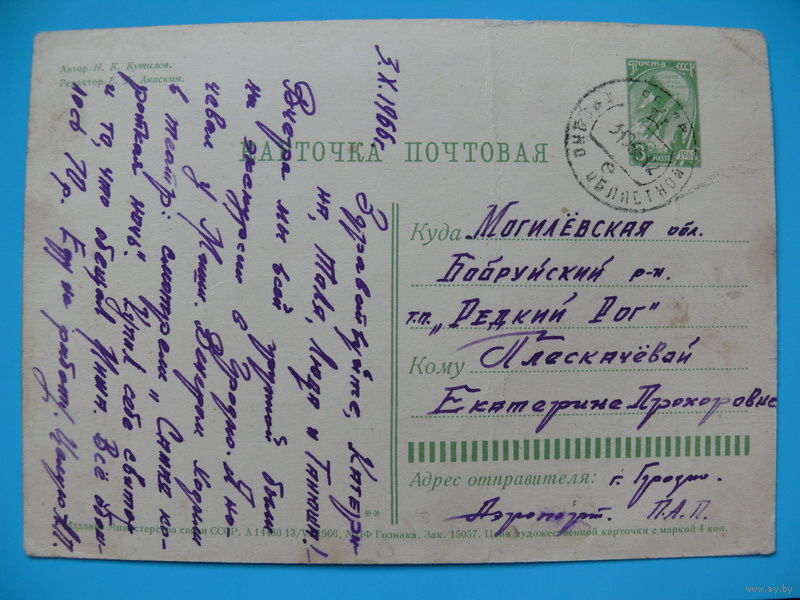 Автор Н. К. Кутилов.
Редактор Е. Анискин.
ПОЧТА СССР
КОП
КАРТОЧКА ПОЧТОВАЯ
3.X.1966г.
Здравствуйте, Катери-
на, Толя, Люда и Танюша!
Вчера мы всей группой были
на экскурсии в Гродно. Я но-
чевал у Миши. Вечером ходили
в театр: смотрели "Самая ко-
роткая ночь". Купил себе свитр
и то, что обещал Миша. Всё обош-
лось 71р. Еду на работу. Целую.
Куда Могилёвская обл.
Бобруйский р-н.
т.п. "Редкий Рог"
Кому Плескачёвой
Екатерине Прохоровне
Адрес отправителя: г. Гродно.
Аэропорт. П.А.П.
Издание Министерства связи СССР. А 14430 13/V 1966, МПФ Гознака. Зак. 15057. Цена художественной карточки с маркой 4 коп.
www.ay.by